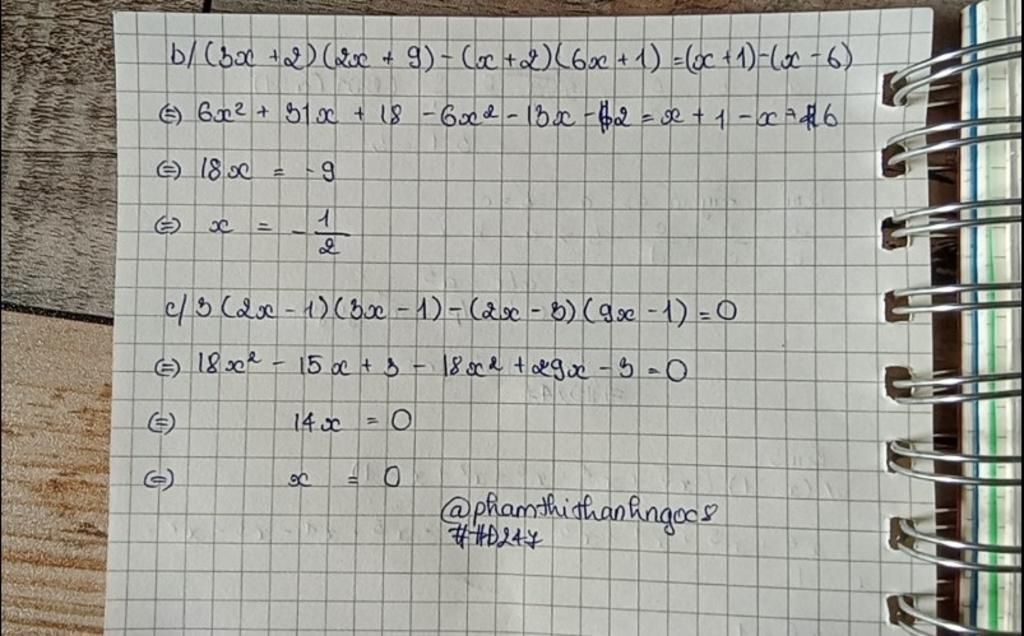 b/ (3x + 2)(2x + 9) - (x + 2)(6x + 1) = (x + 1) - (x - 6)
⇔ 6x² + 31x + 18 - 6x² - 13x - 2 = x + 1 - x + 6
⇔ 18x = -9
⇔ x = -1/2
c/ 3(2x - 1)(3x - 1) - (2x - 3)(9x - 1) = 0
⇔ 18x² - 15x + 3 - 18x² + 29x - 3 = 0
⇔ 14x = 0
⇔ x = 0
@phamthithanhngoc8
#HD247